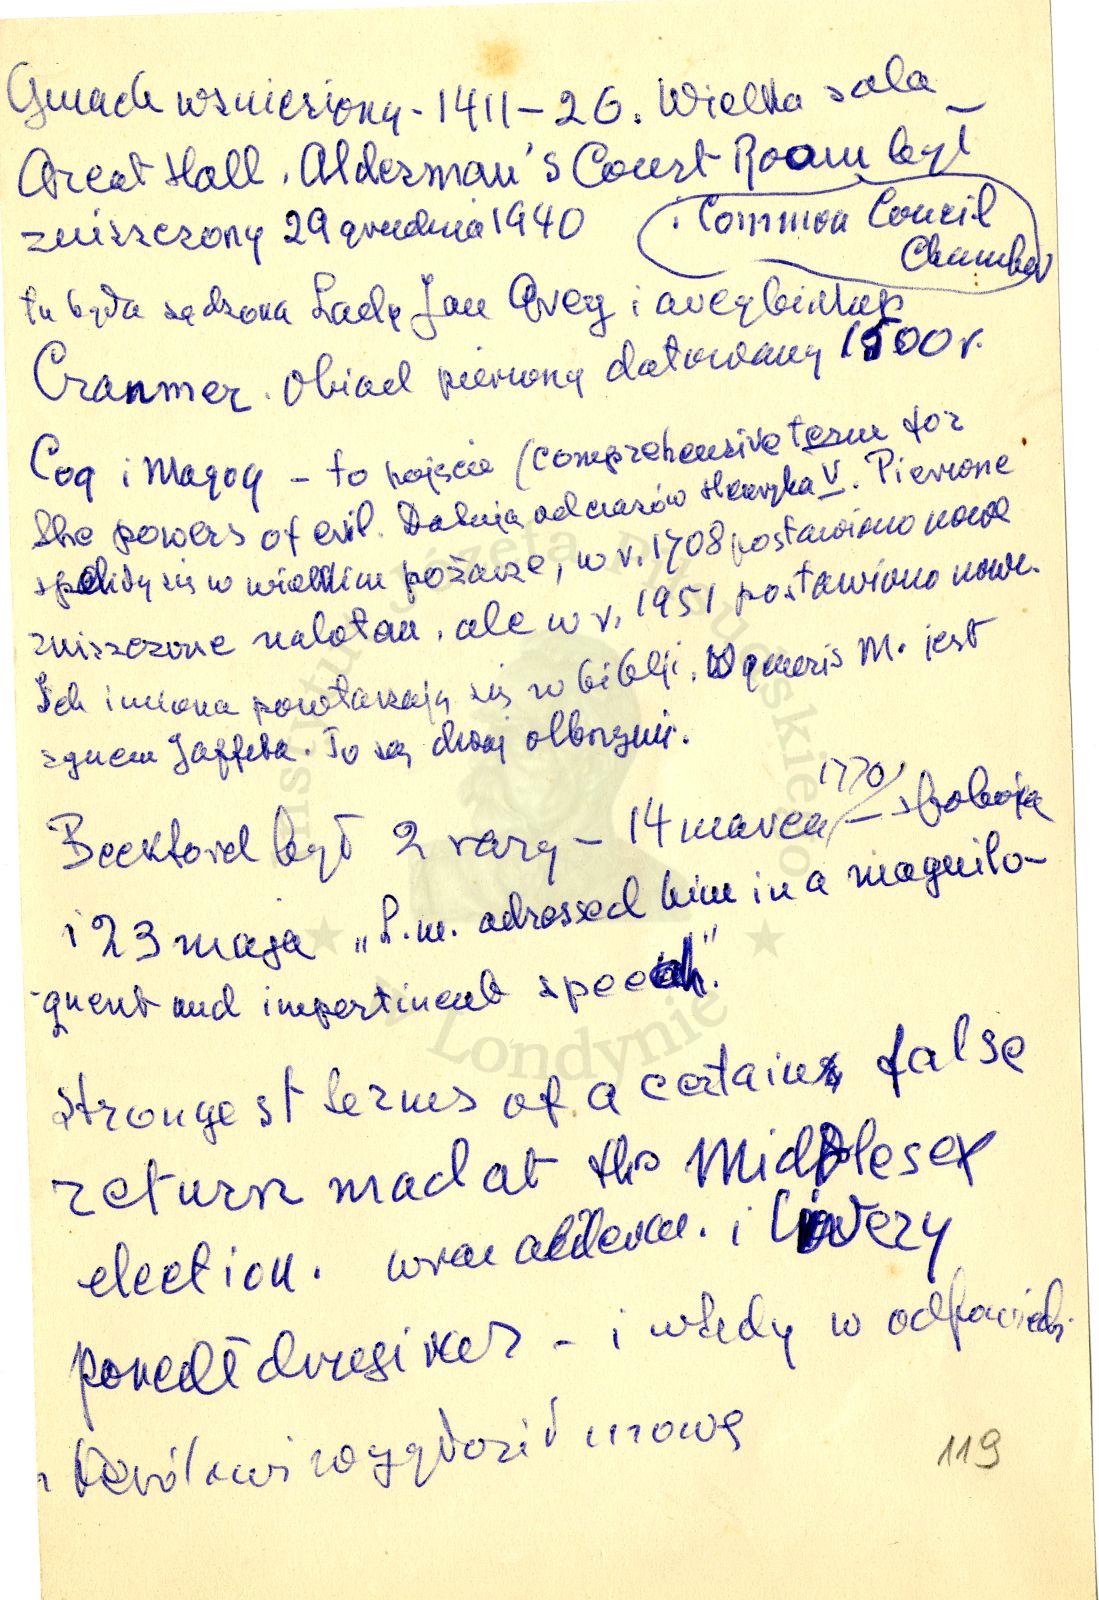 Gmach wzniesiony - 1411 - 26. Wielka sala -
Great Hall. Alderman's Court Room był
zniszczony 29 grudnia 1940
i Common Concil
Chamber
tu była sądzona Lady Jan Grey i arcybiskup
Cranmer. Obiad pierwszy datowany 1500 r.
Gog i Magog - to pojęcie (comprehensive term for
the powers of evil. Datują od czasów Henryka V. Pierwsze
spaliły się w wielkim pożarze, w r. 1708 postawiono nowe
zniszczone nalotem, ale w r. 1951 postawiono nowe.
Ich imiona powtarzają się w biblji. W genezis M. jest
synem Jaffeta. To są dwaj olbrzymi.
1770
Beckford był 2 razy - 14 marca - 
i 23 maja „L.m. adressed him in a magnilo-
quent and impertinent speech".
Strongest terms of a certain false
return mad at the Middlesex
election. wraz alderm. i Livery
poszedł drugi raz - i wtedy w odpowiedzi
królowi wygłosił mowę
119
Instytut Józefa Piłsudskiego
w Londynie